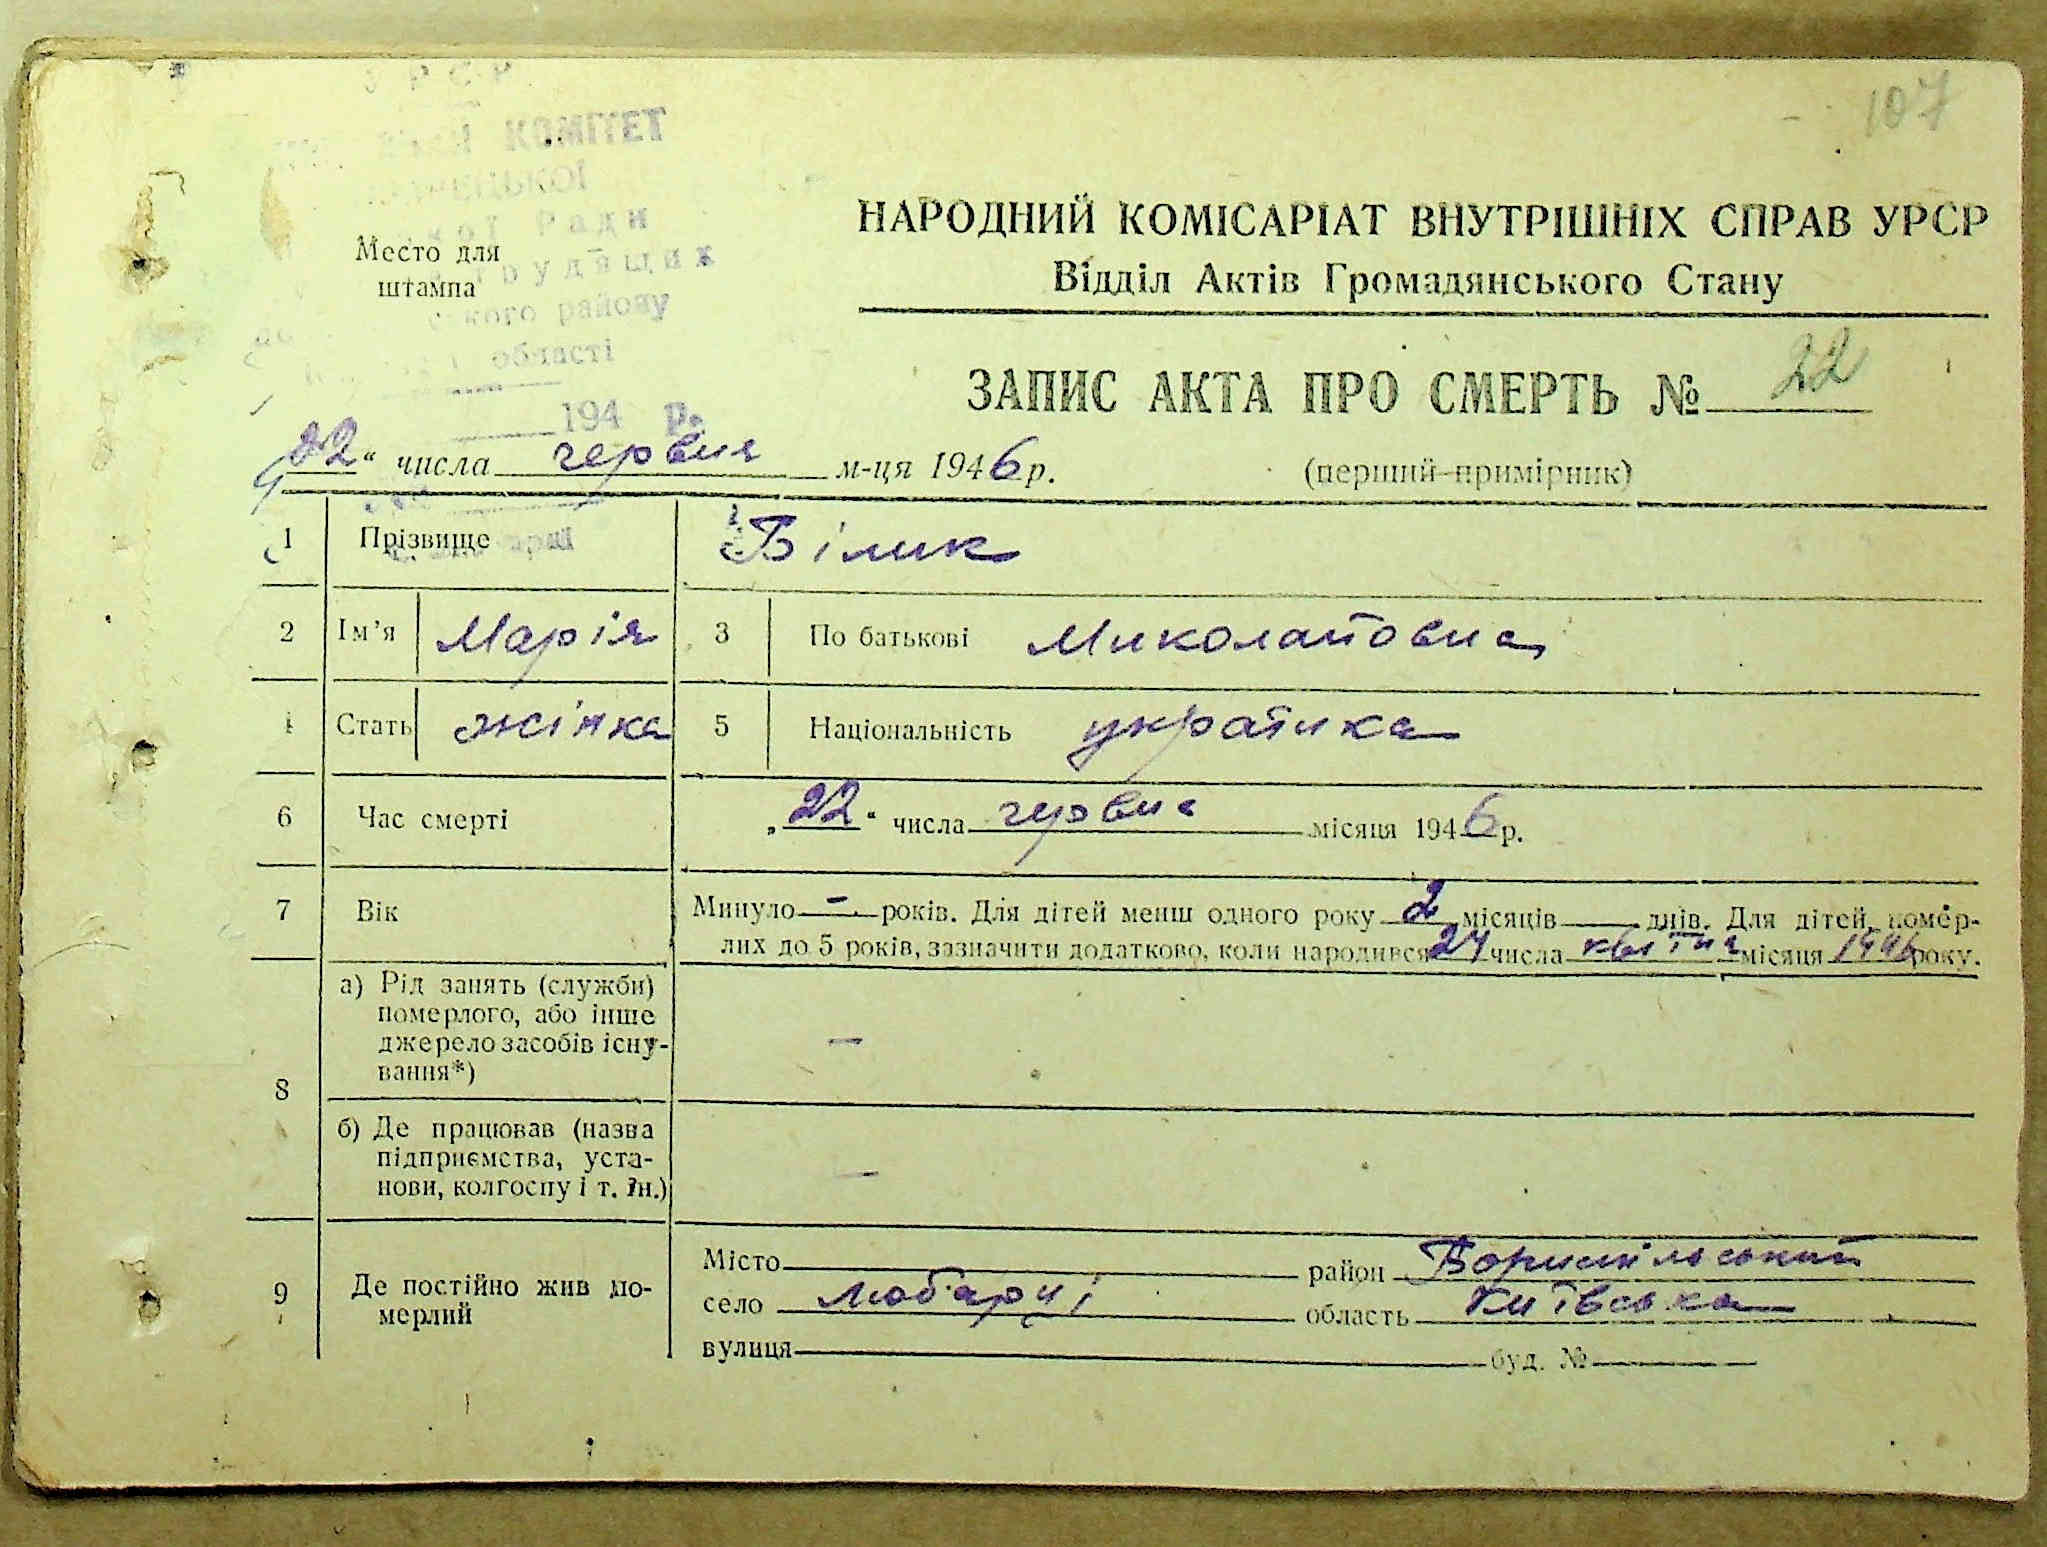 107
КОМІТЕТ
Ради
трудящих
ського району
області
194 р.
Место для
штампа
НАРОДНИЙ КОМІСАРІАТ ВНУТРІШНІХ СПРАВ УРСР
Відділ Актів Громадянського Стану
ЗАПИС АКТА ПРО СМЕРТЬ № 22
22" числа червня м-ця 1946 р. (перший примірник)
1 Прізвище Білик
2 Ім'я Марія 3 По батькові Миколаївна
4 Стать жінка 5 Національність українка
6 Час смерті „22" числа червня місяця 1946 р.
7 Вік Минуло - років. Для дітей менш одного року 2 місяців днів. Для дітей, помер-
лих до 5 років, зазначити додатково, коли народився 24 числа квітня місяця 1946 року.
8 а) Рід занять (служби)
померлого, або інше
джерело засобів існу-
вання*) —
б) Де працював (назва
підприємства, уста-
нови, колгоспу і т. ін.) —
9 Де постійно жив по-
мерлий
Місто район Бориспільський
село Любарці область Київська
вулиця буд. №